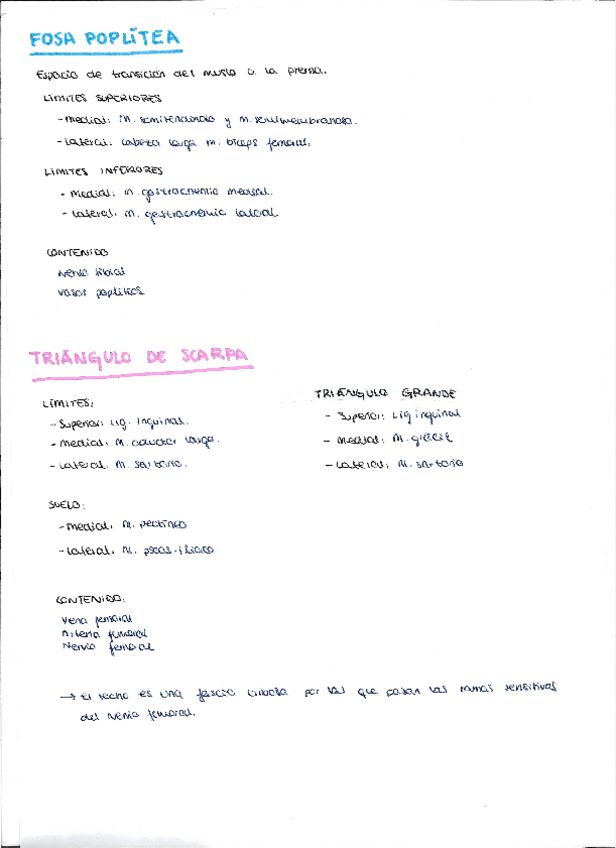 FOSA POPLÍTEA
Espacio de transición del muslo a la pierna.
LÍMITES SUPERIORES
- Medial: m. semitendinoso y m. semimembranoso.
- Lateral: cabeza larga m. bíceps femoral.
LÍMITES INFERIORES
- Medial: m. gastrocnemio medial.
- Lateral: m. gastrocnemio lateral
CONTENIDO
Nervio tibial
Vasos poplíteos
TRIÁNGULO DE SCARPA
LÍMITES:
- Superior: Lig. Inguinal.
- Medial: M. aductor largo.
- Lateral: M. sartorio.
TRIÁNGULO GRANDE
- Superior: Lig inguinal
- Medial: M. grácil
- Lateral: M. sartorio
SUELO:
- Medial: M. pectíneo
- Lateral: M. psoas-ilíaco
CONTENIDO:
Vena femoral
Arteria femoral
Nervio femoral
→ El techo es una fascia cribosa por las que pasan las ramas sensitivas
del nervio femoral.